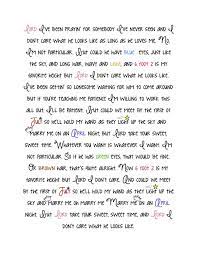 Lord I've been prayin' for somebody I've never seen and I
don't care what he looks like as long as he loves me. No
I'm not particular. But could he have blue eyes, just like
the sky, and long wavy hair and love, and 6 foot 2 is my
favorite height but Lord I don't care what he looks like.
I've been settin' so lonesome waiting for him to come around
but if you're teaching me patience I'm willing to work this
all out. But I'll be quick but could we meet by the first of
July so he'll hold my hand as they light up the sky and
Marry me on an April night. But Lord take your sweet,
sweet time. Whatever you want is whatever I want. I'm
not particular. So if he has green eyes, that would be fine.
Or brown wear, that's home alright. Now 6 foot 2 is my
favorite height but Lord I don't care. And could we meet
by the first of July so he'll hold my hand as they light up the
sky and marry me on marry me on Marry me on an April
night. But Lord take your sweet, sweet time, and Lord I
don't care what he looks like.